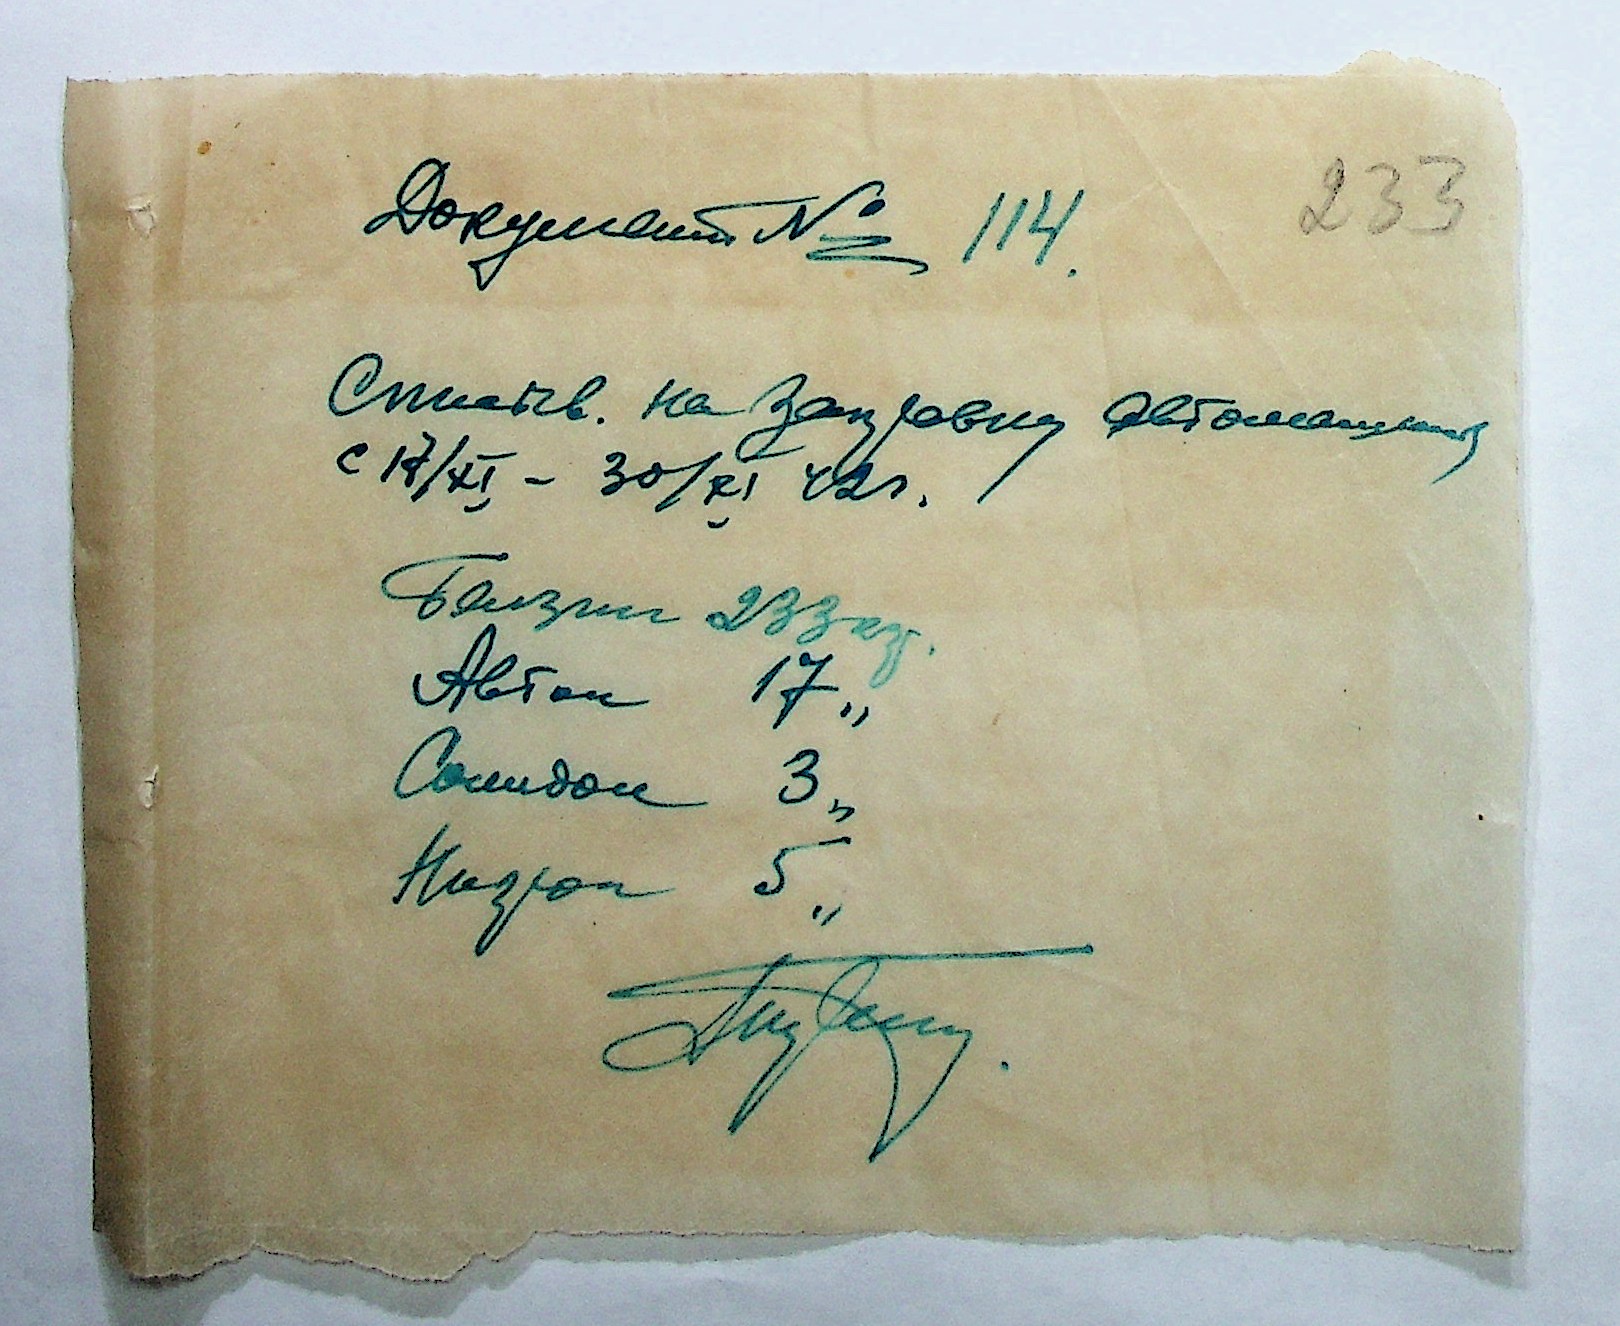 233
Документ № 114.
на Заправку автомашины
с 17/XI - 30/XI 42г.
Бензин 233 кг.
Автол 17 „
Солидол 3 „
Нигрол 5 „